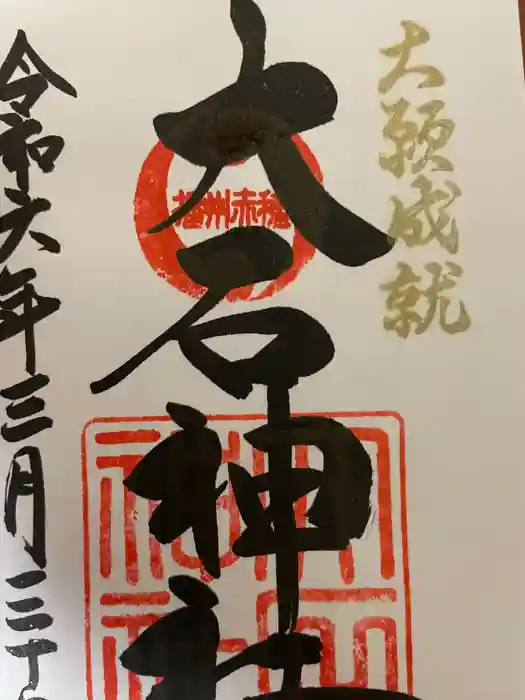 大願成就
大石神社
播州赤穂
令和六年三月三十